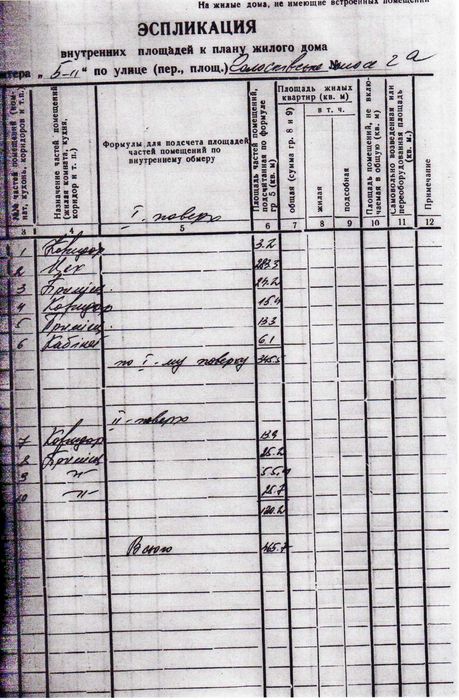 На жилые дома, не имеющие встроенных помещений
ЭСПЛИКАЦИЯ
внутренних площадей к плану жилого дома
литера „Б-II“ по улице (пер., площ.) 2 а
частей помещений (ком-
нат, кухонь, коридоров и т.п.
Назначение частей помещений
(жилая комната, кухня,
коридор и т. п.)
Формулы для подсчета площадей
частей помещений по
внутреннему обмеру
Площадь частей помещений,
подсчитанная по формуле
гр 5 (кв. м)
Площадь жилых
квартир (кв. м)
общая (сумма гр. 8 и 9)
в т. ч.
жилая
подсобная
Площадь помещений, не вклю-
чаемая в общую (кв. м)
Самовольно возведенная или
переоборудованная площадь
(кв. м.)
Примечание
I. поверх
3 5 6 7 8 9 10 11 12
1 Коридор 3.2
2 Цех 283.3
3 Приміщ. 24.2
4 Коридор 15.4
5 Приміщ. 13.3
6 Кабінет 6.1
по I-му поверху 345.5
II-поверх
7 Коридор 13.9
8 Приміщ 25.2
9 -"- 55.4
10 -"- 25.7
120.2
Всього 465.7